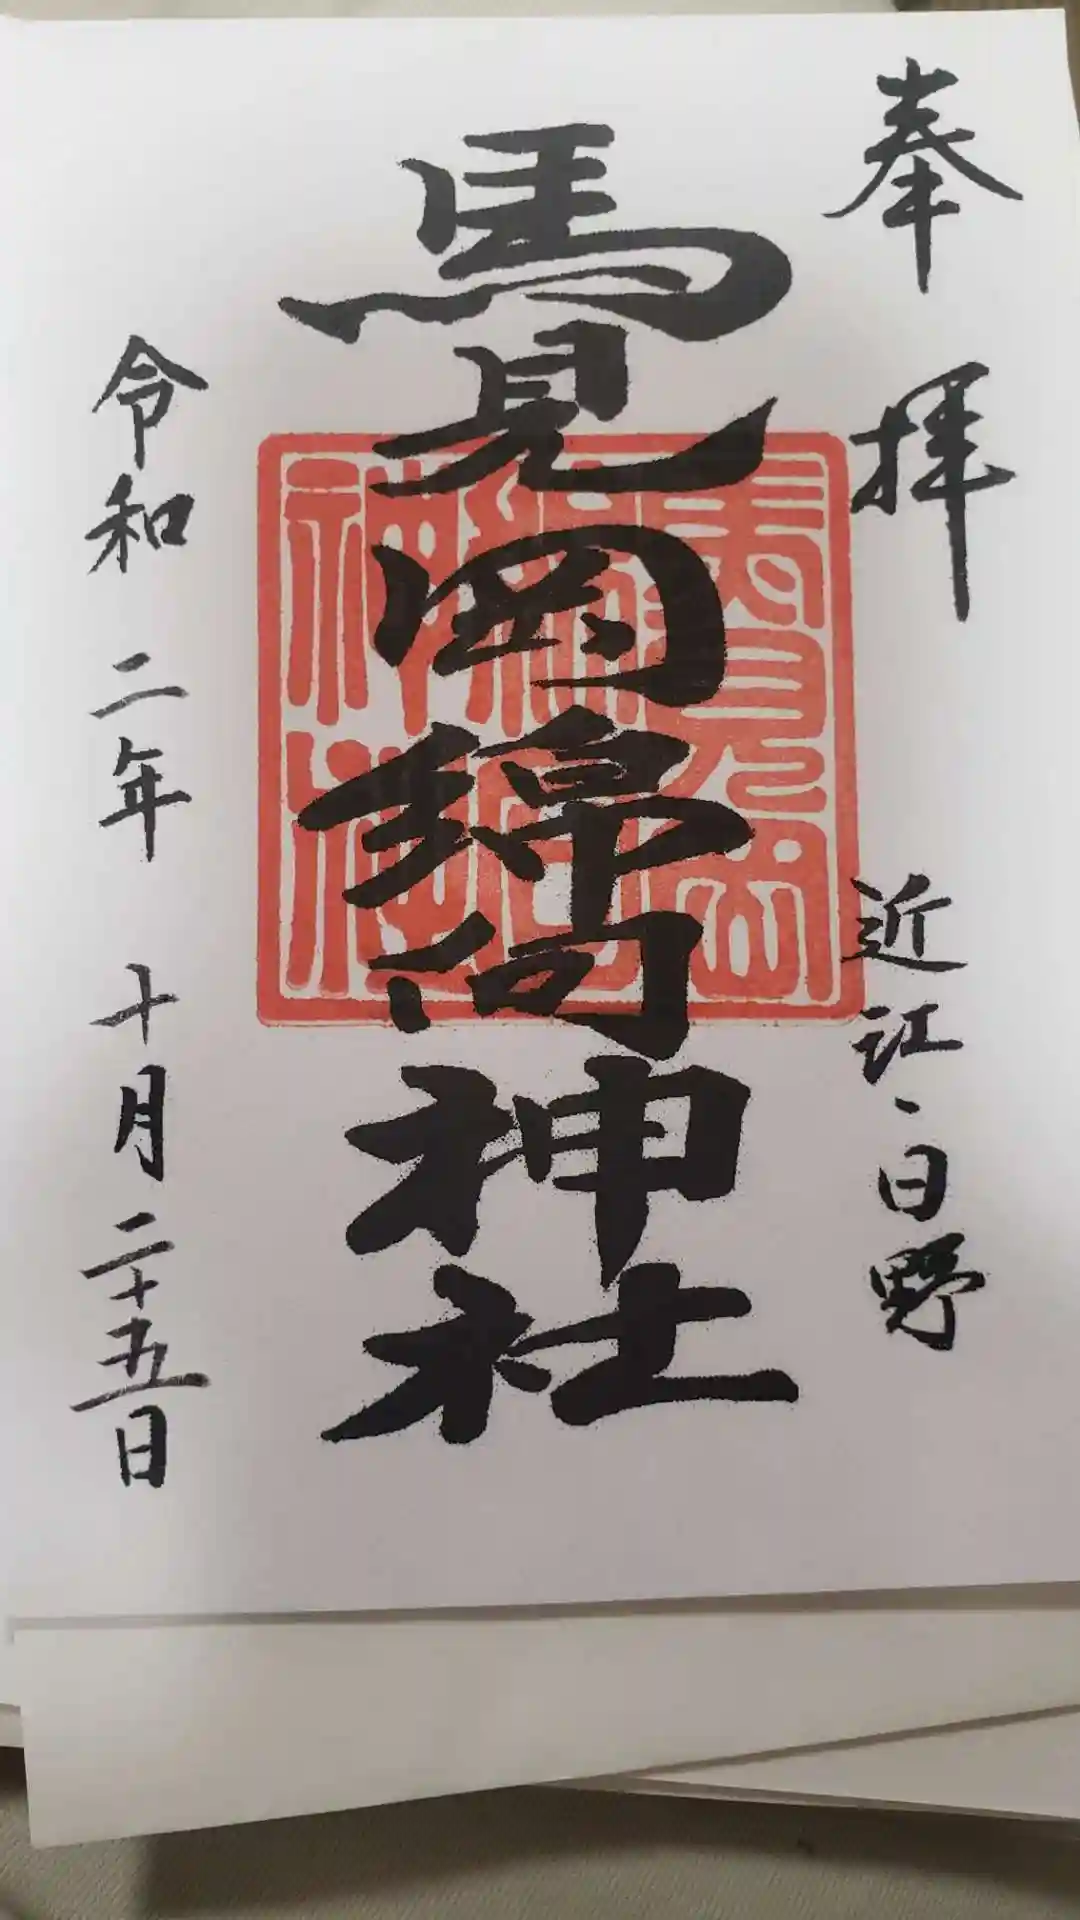 奉拝
近江・日野
馬見岡綿向神社
馬見岡
綿向
神社
令和二年 十月二十五日